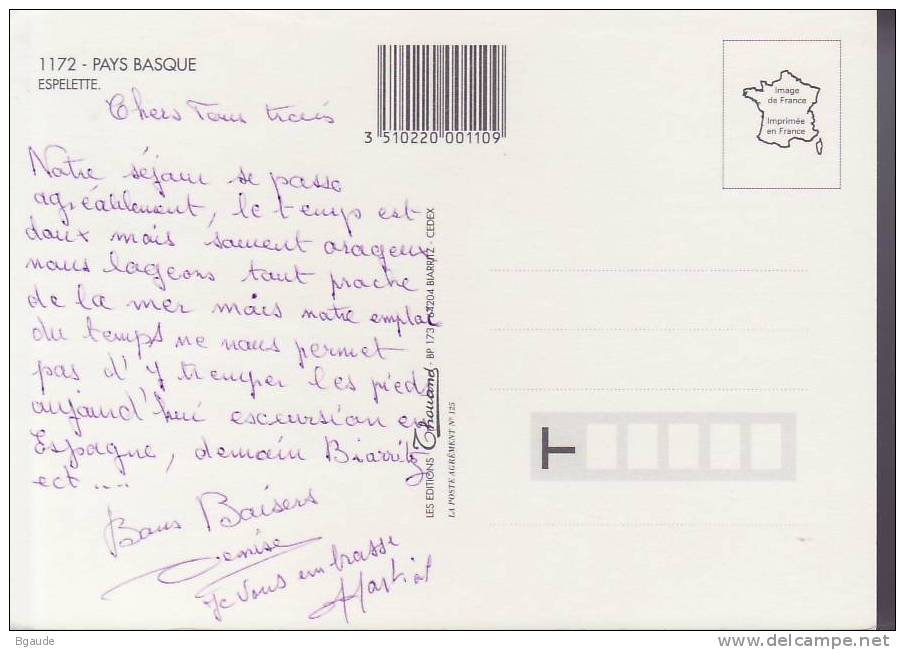 1172 - PAYS BASQUE
ESPELETTE.
Chers Tous trois
3 510220 001109
Image
de France
Imprimée
en France
Notre séjour se passe
agréablement, le temps est
doux mais souvent orageux,
nous logeons tout proche
de la mer mais notre emploi
du temps ne nous permet
pas d'y tremper les pieds
aujourd'hui escursion en
Espagne, demain Biarritz
ect ....
Bons Baisers
Denise
Je vous embrasse
Martial
LES EDITIONS Thouand - BP 173 - 64204 BIARRITZ - CEDEX
LA POSTE AGRÉMENT N° 125
T
Bgaude
www.delcampe.net